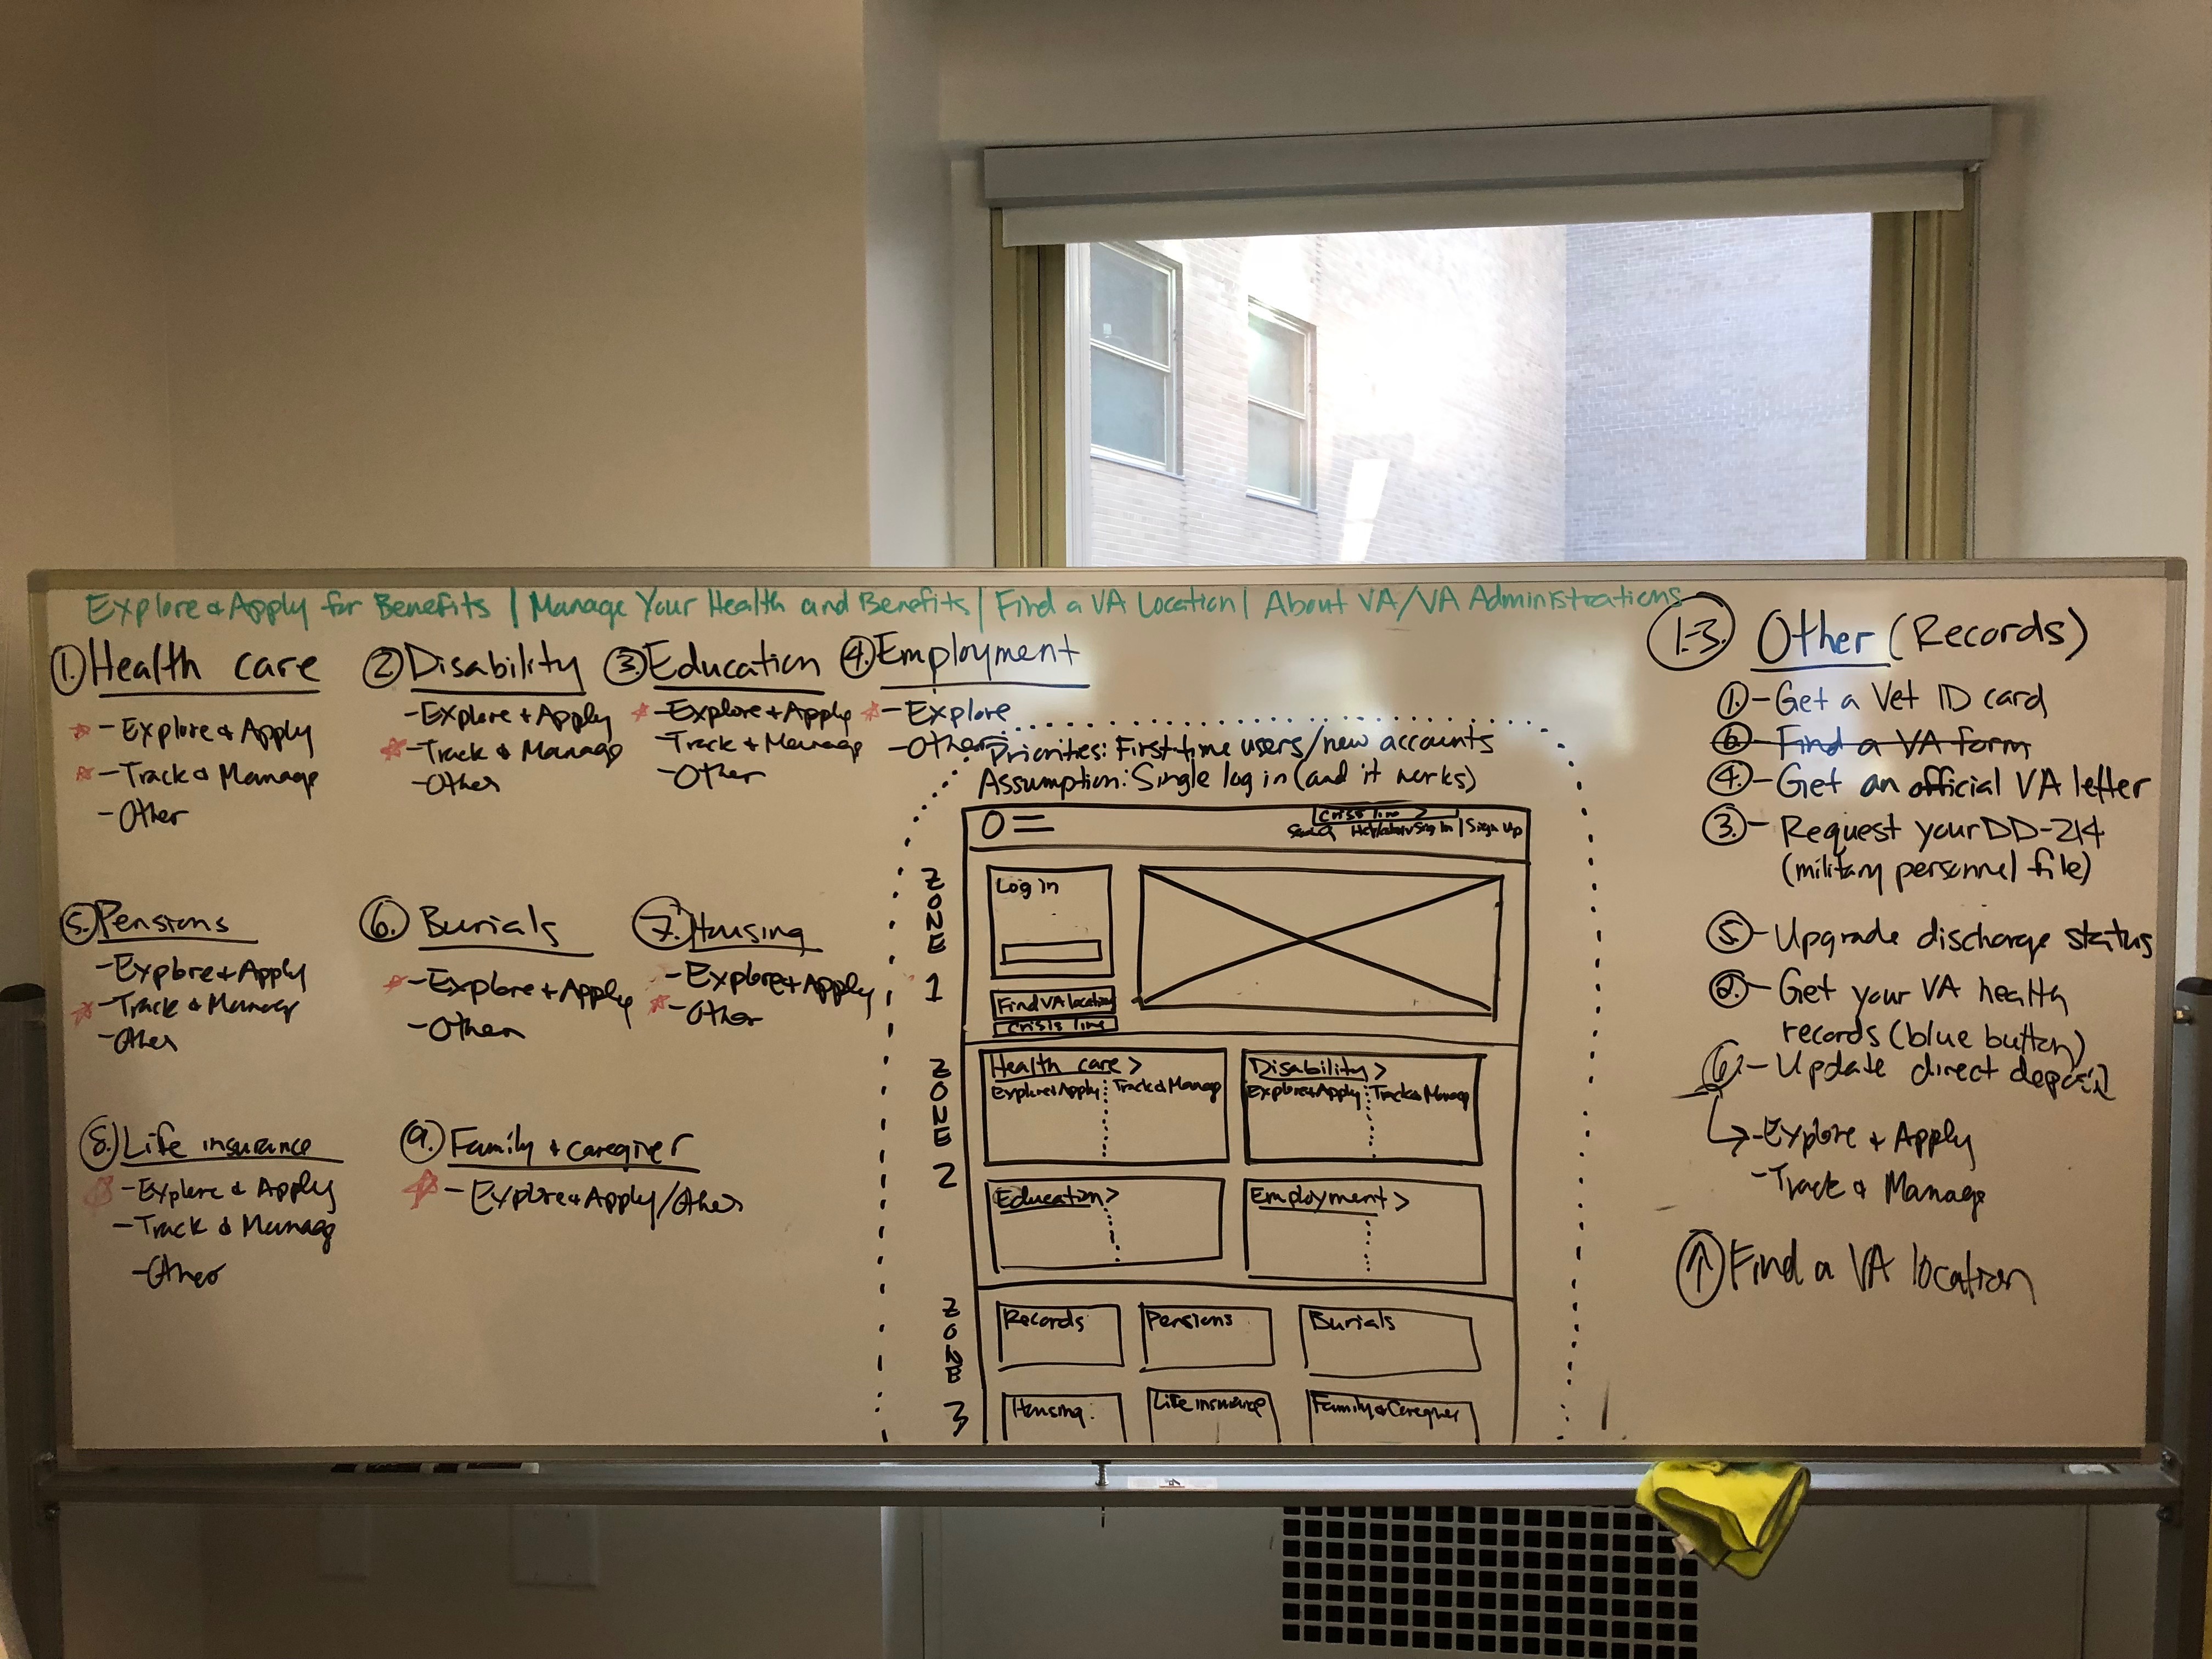 Explore & Apply for Benefits | Manage Your Health and Benefits | Find a VA Location | About VA/VA Administrations
1. Health care
- Explore & Apply
- Track & Manage
- Other
2. Disability
- Explore + Apply
- Track & Manage
- Other
3. Education
- Explore + Apply
- Track & Manage
- Other
4. Employment
- Explore
- Other
5. Pensions
- Explore + Apply
- Track & Manage
- Other
6. Burials
- Explore + Apply
- Other
7. Housing
- Explore + Apply
- Other
8. Life insurance
- Explore & Apply
- Track & Manage
- Other
9. Family & caregiver
- Explore & Apply/Other
Priorities: First-time users/new accounts
Assumption: Single log in (and it works)
Crisis line >
Sign In | Sign Up
ZONE 1
Log in
Find VA location
Crisis line
ZONE 2
Health care >
Explore & Apply Track & Manage
Disability >
Explore & Apply Track & Manage
Education >
Employment >
ZONE 3
Records
Pensions
Burials
Housing
Life insurance
Family & Caregiver
1-3. Other (Records)
1. - Get a Vet ID card
6 - Find a VA form
4. - Get an official VA letter
3. - Request your DD-214
(military personnel file)
5. - Upgrade discharge status
2. - Get your VA health
records (blue button)
6. - Update direct deposit
- Explore & Apply
- Track & Manage
↑ Find a VA location